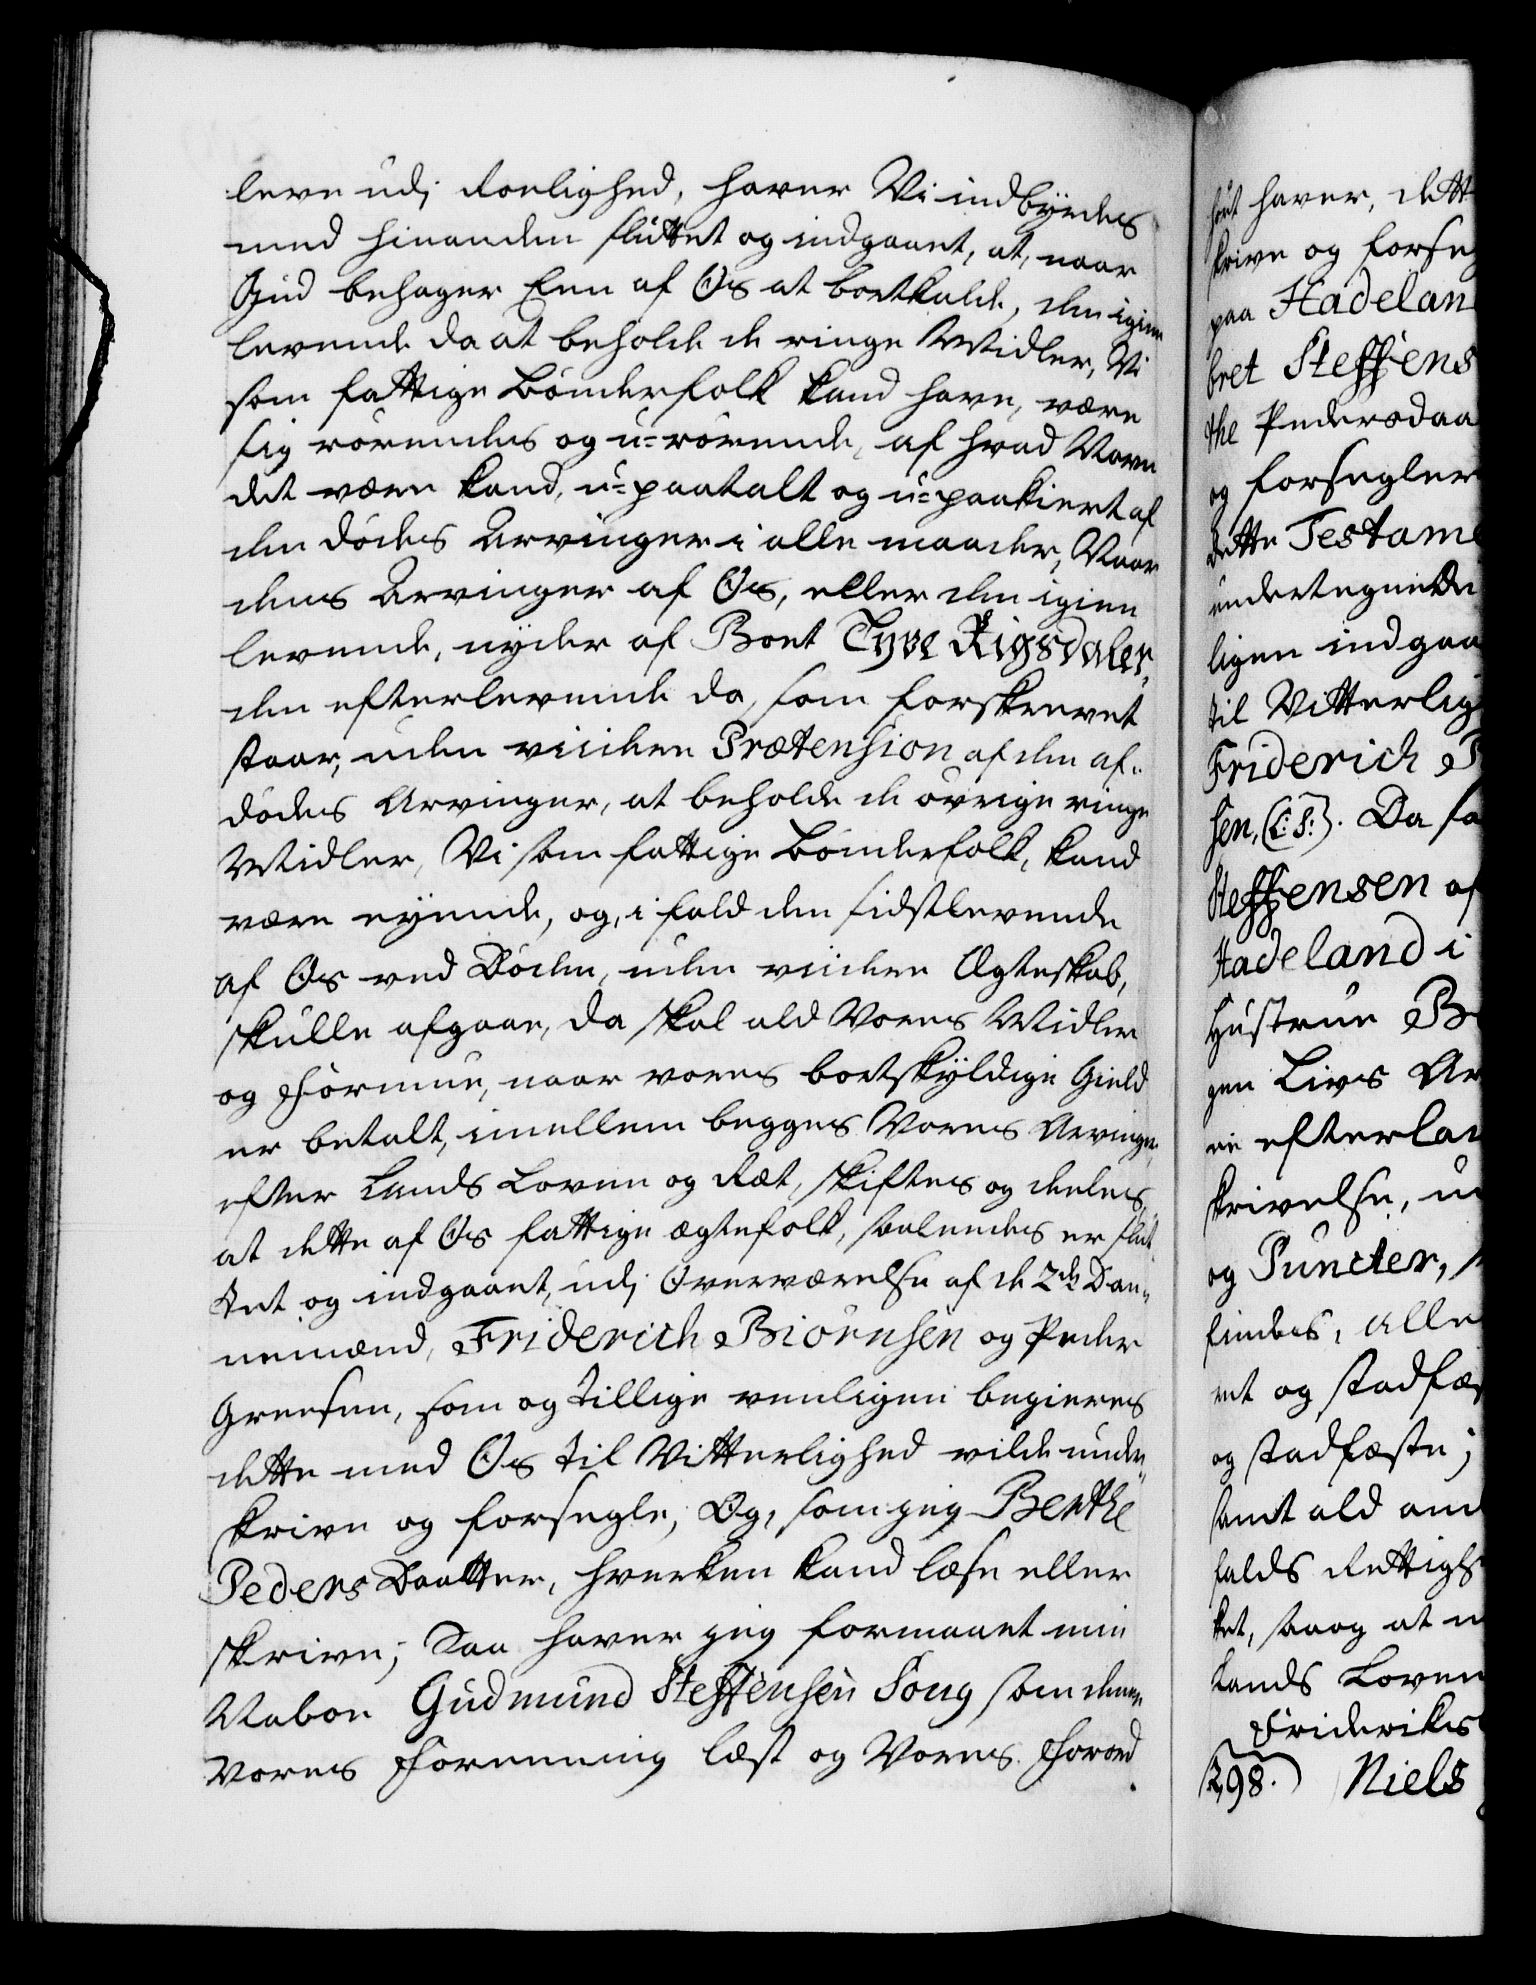 leve udj Roelighed, haver Vi indbÿrdes
med hinanden sluttet og indgaaet, at, naar
Gud behager Een af Os at bortkalde, den igien
levende da at beholde de ringe Midler, Vi
som fattige Bønderfolk kand have, være
sig rørendes og u-rørende, af hvad Navn
det være kand, u-paatalt og u-paakiert af
den dødes Arvinger i alle maader, Naar
dens Arvinger af Os, eller den igien
levende, nyder af Boet Tyve Rigsdaler,
den efterlevende da, som forskrevet
staar, uden viidere Prætension af den af-
dødes Arvinger, at beholde de øvrige ringe
Midler, Vi som fattige Bønderfolk, kand
være eyende, og, i fald den sidstlevende
af Os ved Døden, uden viidere Ægteskab,
skulle afgaae, da skal ald Vores Midler
og Formue, naar vores bortskÿldige Gield
er betalt, imellem begges Vores Arvinger,
efter Lands Loven og Ræt, skiftes og deeles,
at dette af Os fattige ægtefolk, saaledes er slut-
tet og indgaaet, udj Overværelse af de 2de Dan-
nemænd, Friderich Biørnsen og Peder
Greesen, som og tillige venligen begieres
dette med Os til Vitterlighed vilde under-
skrive og forsegle, Og, som jeg Berthe
Peders Daatter, hverken kand læse eller
skrive; Saa haver jeg formaaet min
Naboe Gudmund Steffensen Soug som denne
vores Foreening læst og Vores Forord
sørt haver, dett
skrive og forseg
paa Hadelan
bret Steffens
the Pedersdaa
og forsegler
dette Testame
undertegnede
ligen indgaa
til Vitterlig
Friderich B
sen, (L: S:). Da sa
Steffensen af
Hadeland i
Hustrue B
gen Livs Ar
ei efterlad
skrivelse, u
og Puncter,
findes, alle
ret og stadfæs
og stadfæste;
samt ald an
falds Rettigh
ket, saaog at
Lands Loven
Frideriks
298. Niels